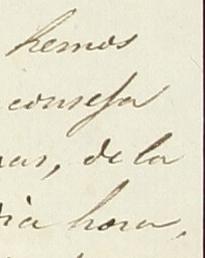 hemos
conseja
nas, de la
dia hora,